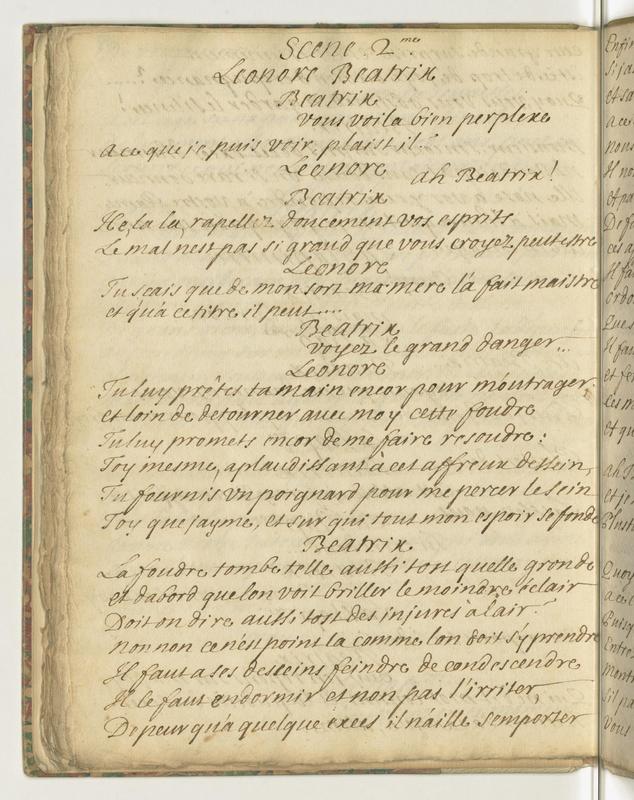 Scene. 2me
Leonore Beatrix
Beatrix
vous voila bien perplexe
a ce que je puis voir, plaist il?
Leonore
ah Beatrix!
Beatrix
He la la rapellez doucement vos esprits
Le mal nest pas si grand que vous croyez peutestre
Leonore
Tu scais que de mon sort ma mere l'a fait maistre
et qu'a ce titre il peut....
Beatrix
voyez le grand danger...
Leonore
Tu luy prêtes ta main encor pour m'outrager
et loin de detourner avec moy cette foudre
Tu luy promets encor de me faire resoudre:
Toy mesme, aplaudissant à cet affreux dessein,
Tu fournis un poignard pour me percer le sein
Toy que j'ayme, et sur qui tout mon espoir se fonde
Beatrix
La foudre tombe telle aussi tost quelle gronde
et dabord que lon voit briller le moindre éclair
Doit on dire aussi tost des injures à lair?
non non ce n'est point la comme lon doit s'y prendre
Il faut a ses desseins feindre de condescendre
Il le faut endormir et non pas l'irriter,
De peur qu'a quelque exces il n'aille semporter